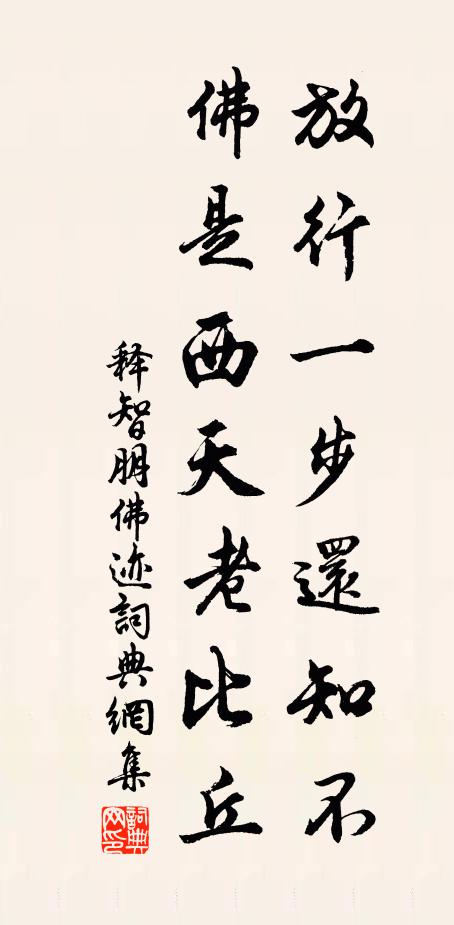 放行一步還知不
佛是西天老比丘
释智朋佛迹詞典網集
詞典網印